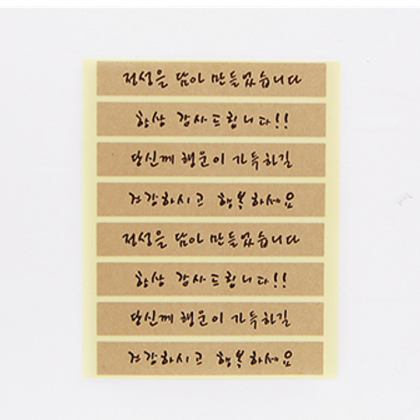 정성을 담아 만들었습니다
항상 감사드립니다!!
당신께 행운이 가득하길
건강하시고 행복하세요
정성을 담아 만들었습니다
항상 감사드립니다!!
당신께 행운이 가득하길
건강하시고 행복하세요